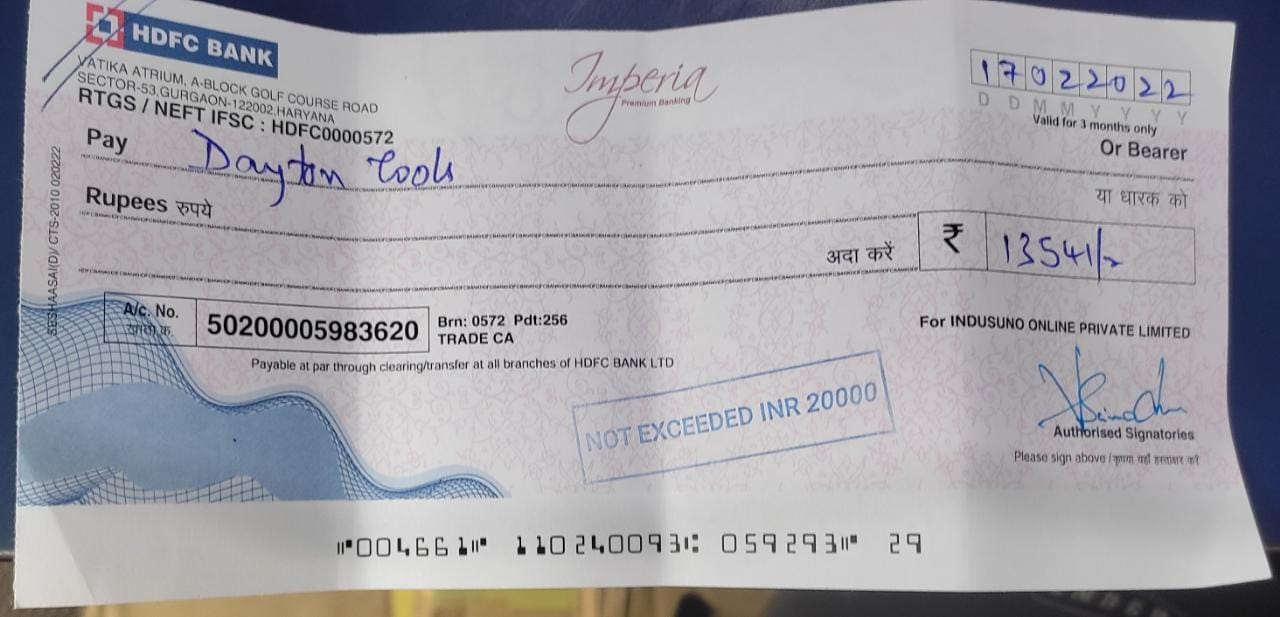 HDFC BANK
VATIKA ATRIUM, A-BLOCK GOLF COURSE ROAD
SECTOR-53,GURGAON-122002,HARYANA
RTGS / NEFT IFSC : HDFC0000572
Imperia
Premium Banking
17022022
D D M M Y Y Y Y
Valid for 3 months only
Pay Dayton Tools
Or Bearer
या धारक को
Rupees रुपये
अदा करें ₹ 13541/-
A/c. No.
खाता क्र.
50200005983620
Brn: 0572 Pdt:256
TRADE CA
Payable at par through clearing/transfer at all branches of HDFC BANK LTD
For INDUSUNO ONLINE PRIVATE LIMITED
NOT EXCEEDED INR 20000
Authorised Signatories
Please sign above / कृपया यहाँ हस्ताक्षर करें
CTS-2010 020222
⑈004661⑈ 110240093⑆ 059293⑈ 29